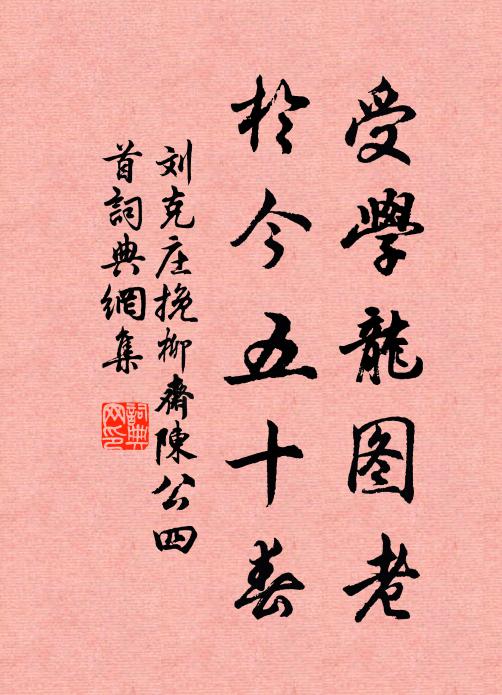 受學龍图老
於今五十春
刘克庄挽柳齋陳公四
首詞典網集
詞典網印